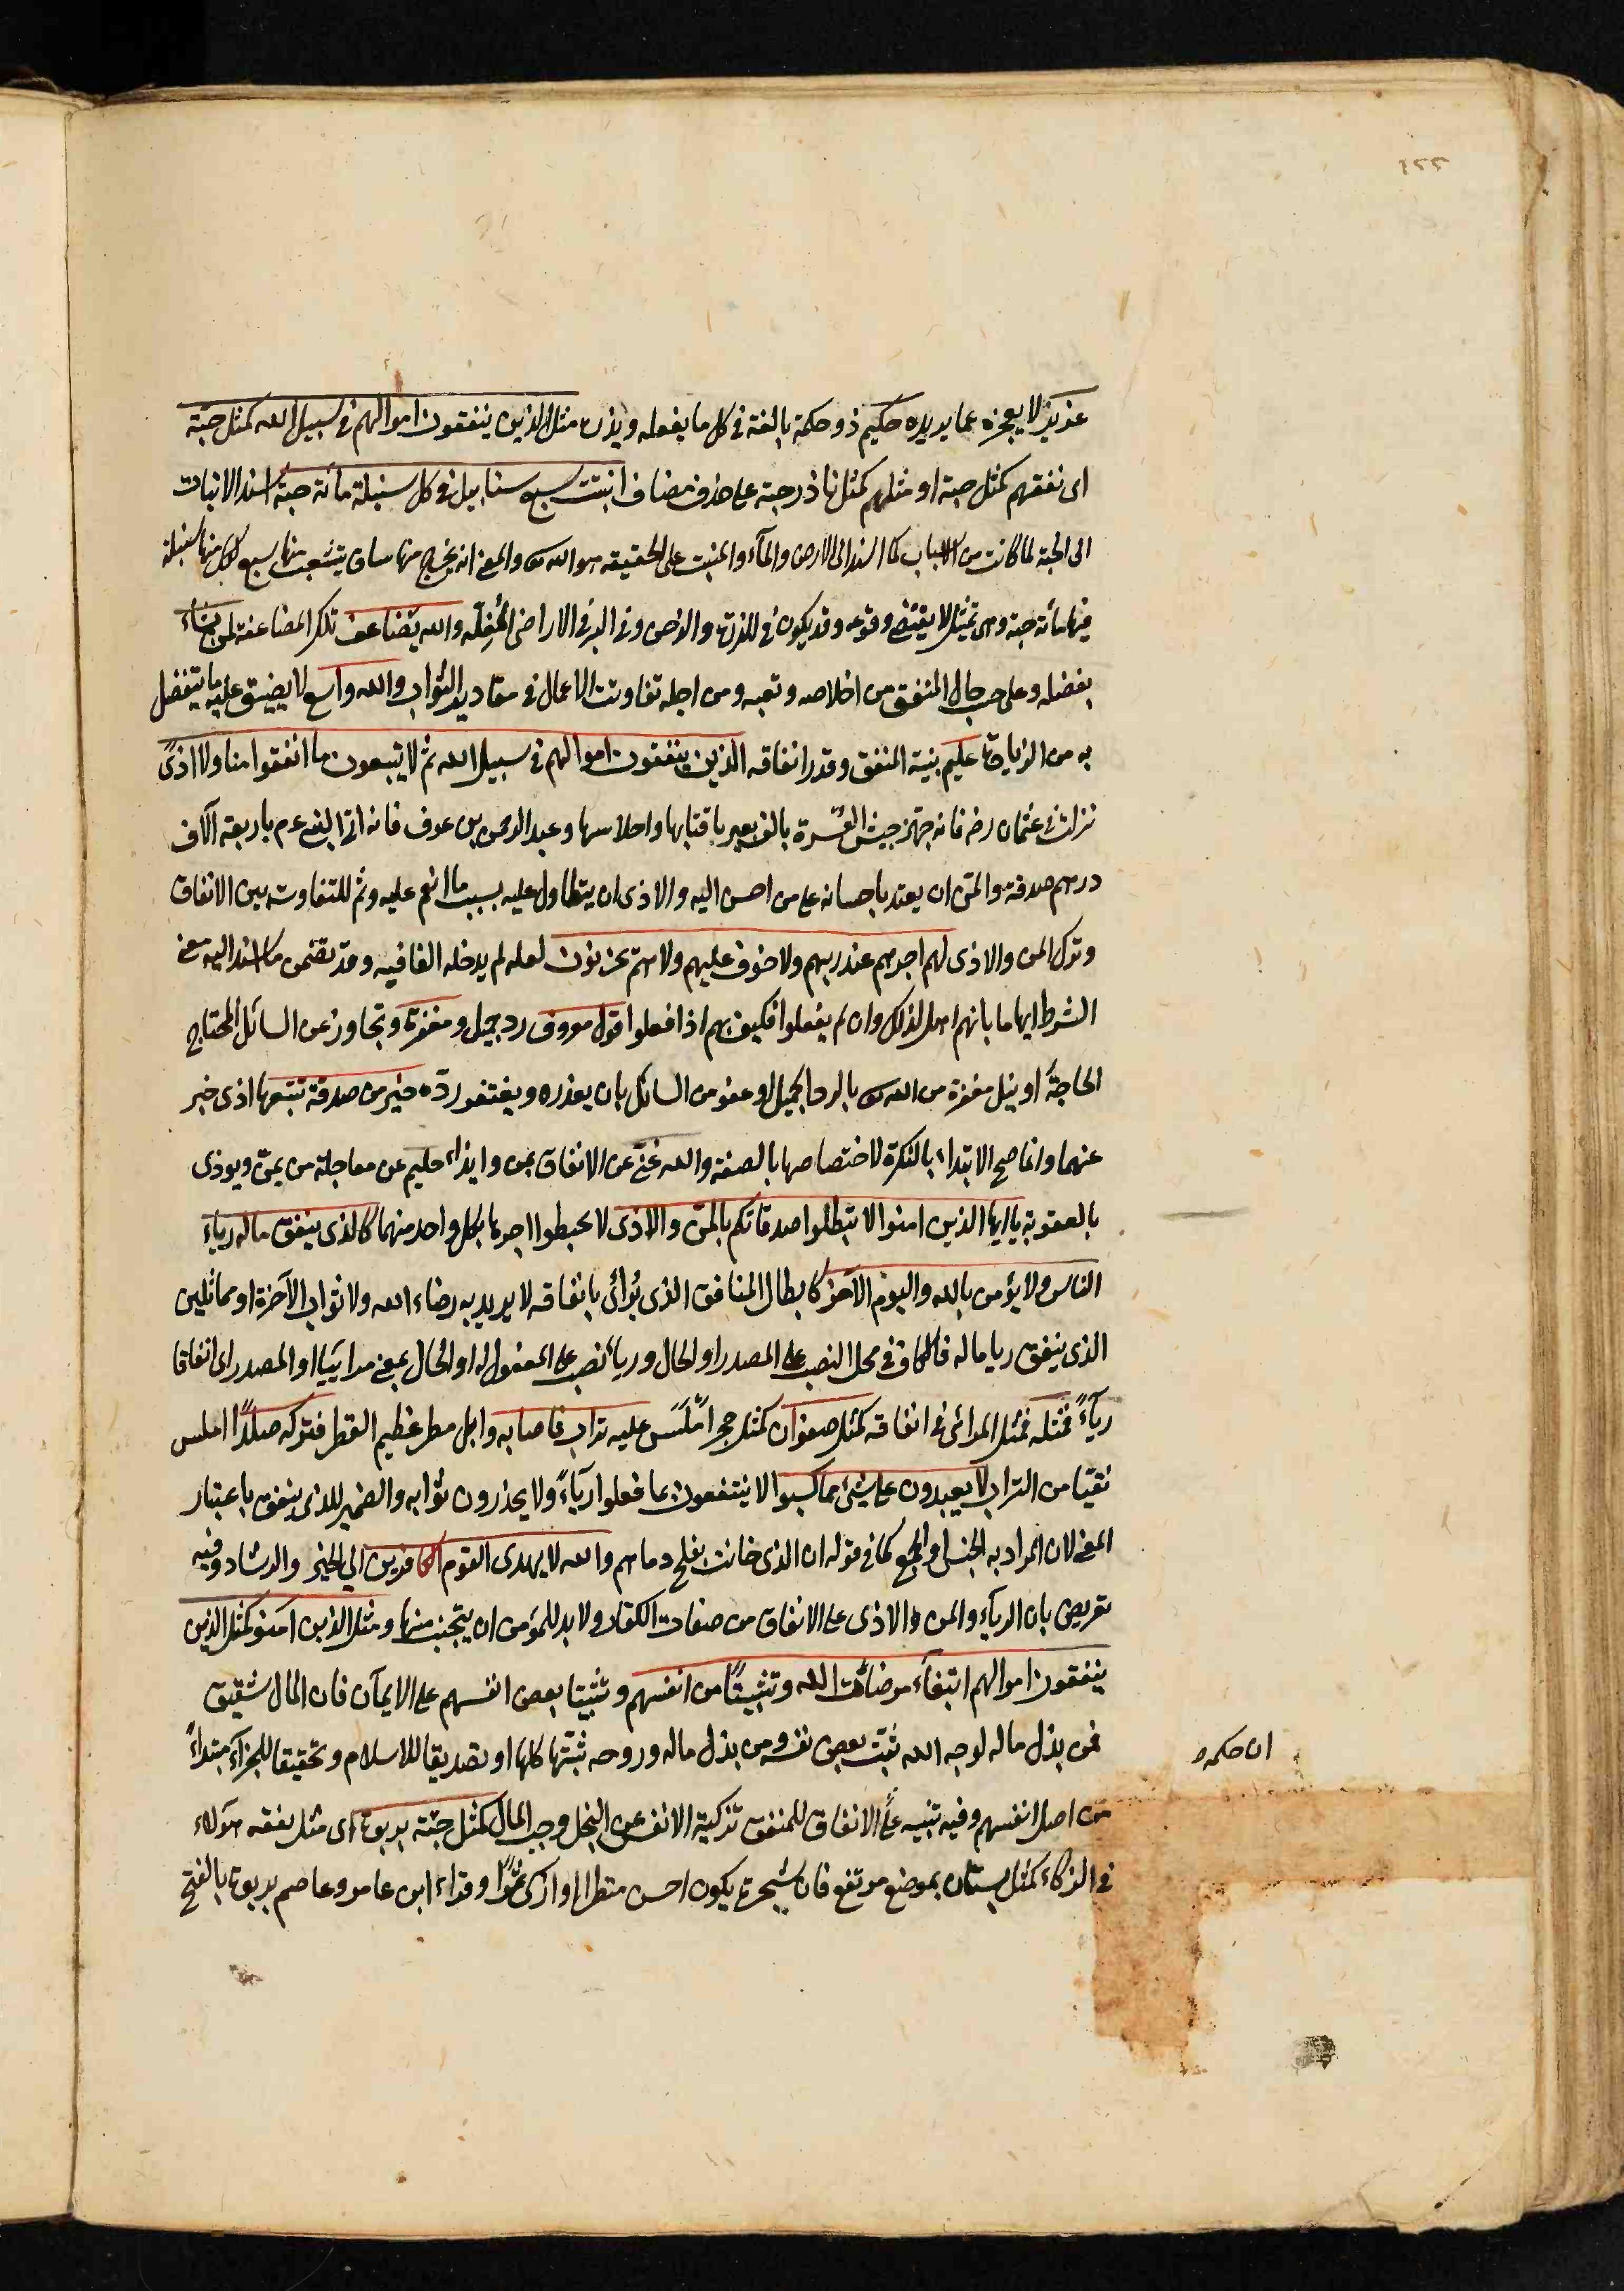 ٢٢١
عزيز لا يعجزه عما يريده حكيم ذو حكمة بالغة في كل ما يفعله ويذره مثل الذين ينفقون اموالهم في سبيل الله كمثل حبة
اى نفقتهم كمثل حبة او مثلهم كمثل باذر حبة على حذف مضاف انبتت سبع سنابل في كل سنبلة مائة حبة اسند الانبات
الى الحبة لما كانت من الاسباب كما اسند الى الارض والمآء والمنبت على الحقيقة هو الله تع والمعنى انه يخرج منها ساق يتشعب منها سبع لكل منها سنبلة
فيها مائة حبة وهى تمثيل لا يقتضى وقوعه وقد يكون فى الذرة والدخن وفى البر فى الاراضى المُغِلَّة والله يضاعف تلك المضاعفة لمن يشاء
بفضله وعلى حسب حال المنفق من اخلاصه وتعبه ومن اجله تفاوتت الاعمال فى مقادير الثواب والله واسع لا يضيق عليه ما يتفضل
به من الزيادة عليم بنية المنفق وقدر انفاقه الذين ينفقون اموالهم فى سبيل الله ثم لا يتبعون ما انفقوا منا ولا اذىً
نزلت فى عثمان رض فانه جهّز جيش العُسرة بالف بعير باقتابها واحلاسها وعبد الرحمن بن عوف فانه اتى النبى ءم باربعة آلاف
درهم صدقة والمنّ ان يعتد باحسانه على من احسن اليه والاذى ان يتطاول عليه بسبب ما انعم عليه وثم للتفاوت بين الانفاق
وترك المن والاذى لهم اجرهم عند ربهم ولا خوف عليهم ولا هم يحزنون لعله لم يدخله الفا فيه وقد تضمن ما اسند اليه معنى
الشرط ايهاما بانهم اهل لذلك وان لم يفعلوا فكيف بهم اذا فعلوا قول معروف رد جميل ومغفرة وتجاوز عن السائل المحتاج
الحاجةَ او نيل مغفرة من الله تع بالرد الجميل او عفو من السائل بان يعذره ويغتفر ردّه خير من صدقة تتبعها اذى خبر
عنهما وانما صح الابتداء بالنكرة لاختصاصها بالصفة والله غنىّ عن الانفاق بمن وايذاء حليم عن معاجلة من يمنّ ويوذى
بالعقوبة يا ايها الذين امنوا لا تبطلوا صدقاتكم بالمنّ والاذى لا تحبطوا اجرها بكل واحد منهما كالذى ينفق ماله رياء
الناس ولا يؤمن بالله واليوم الآخر كابطال المنافق الذى يُرائى بانفاقه لا يريد به رضاء الله ولا ثواب الآخرة او مماثلين
الذى ينفق ريا ماله فالكاف فى محل النصب على المصدر او الحال ورياءً نصب على المفعول له او الحال بمعنى مرائييا او المصدر اى انفاقا
ريآءً فمثله فمثل المرائى فى انفاقه كمثل صفوان كمثل حجر املَس عليه تراب فاصابه وابل مطر عظيم القطر فتركه صلدًا املس
نقيّا من التراب لا يقدرون على شئ مما كسبوا لا ينتفعون بما فعلوا ريآءً ولا يجدرون ثوابه والضمير للذى ينفق باعتبار
المعنى لان المراد به الجنس او الجمع كما فى قوله ان الذى حانت بفلج دماهم والله لا يهدى القوم الكافرين الى الخير والرشاد وفيه
تعريض بان الريآء والمن والاذى على الانفاق من صفات الكفار ولا بد للمؤمن ان يتجنب منها ومثل الذين امنو كمثل الذين
ينفقون اموالهم ابتغآء مرضات الله وتثبيتًا من انفسهم وتثبيتا بعض انفسهم على الايمان فان المال شقيق
فمن بذل ماله لوجه الله ثبت بعض نفسه ومن بذل ماله وروحه ثبتها كلها او تصديقا للاسلام وتحقيقا للجزاء مبتداءً
من اصل انفسهم وفيه تنبيه على الانفاق للمنفق تزكية الانفس عن البخل وحب المال كمثل جنة بربوة اى مثل نفقة هولاء
فى الزكاء كمثل بستان بموضع مرتفع فان شجرة يكون احسن منظرا او ازكى ثمرًا وقراء ابن عامر وعاصم بربوة بالفتح
ان حكمه